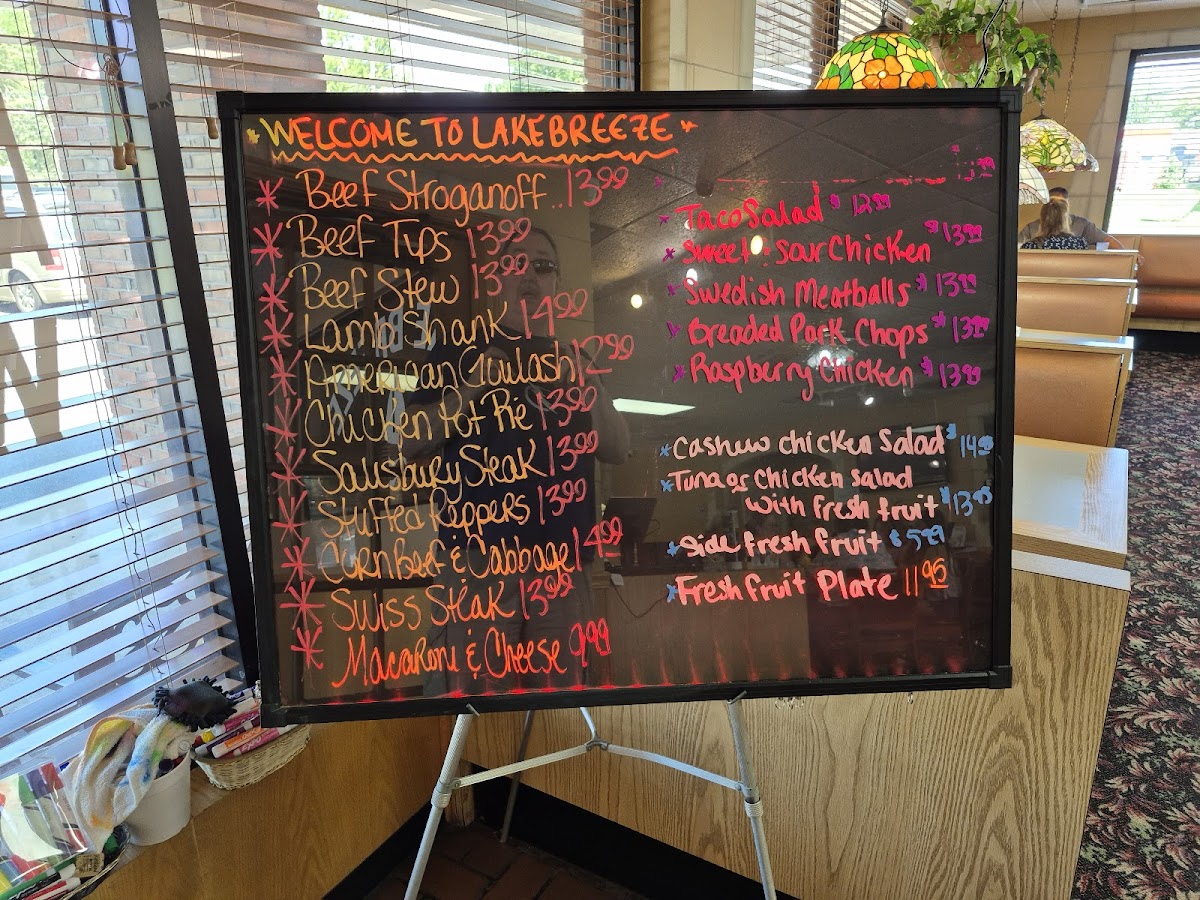 WELCOME TO LAKEBREEZE
* Beef Stroganoff..13.99
* Beef Tips 13.99
* Beef Stew 13.99
* Lamb Shank 14.99
* American Goulash 12.99
* Chicken Pot Pie 13.99
* Salsbury Steak 13.99
* Stuffed Peppers 13.99
* Corn Beef & Cabbage 14.99
* Swiss Steak 13.99
* Macaroni & Cheese 9.99
* Taco Salad $12.99
* Sweet & Sour Chicken $13.99
* Swedish Meatballs $13.99
* Breaded Pork Chops $13.99
* Raspberry Chicken $13.99
* Cashew chicken Salad $14.95
* Tuna or Chicken salad
with fresh fruit $13.95
* Side fresh fruit $5.99
* Fresh fruit Plate 11.95